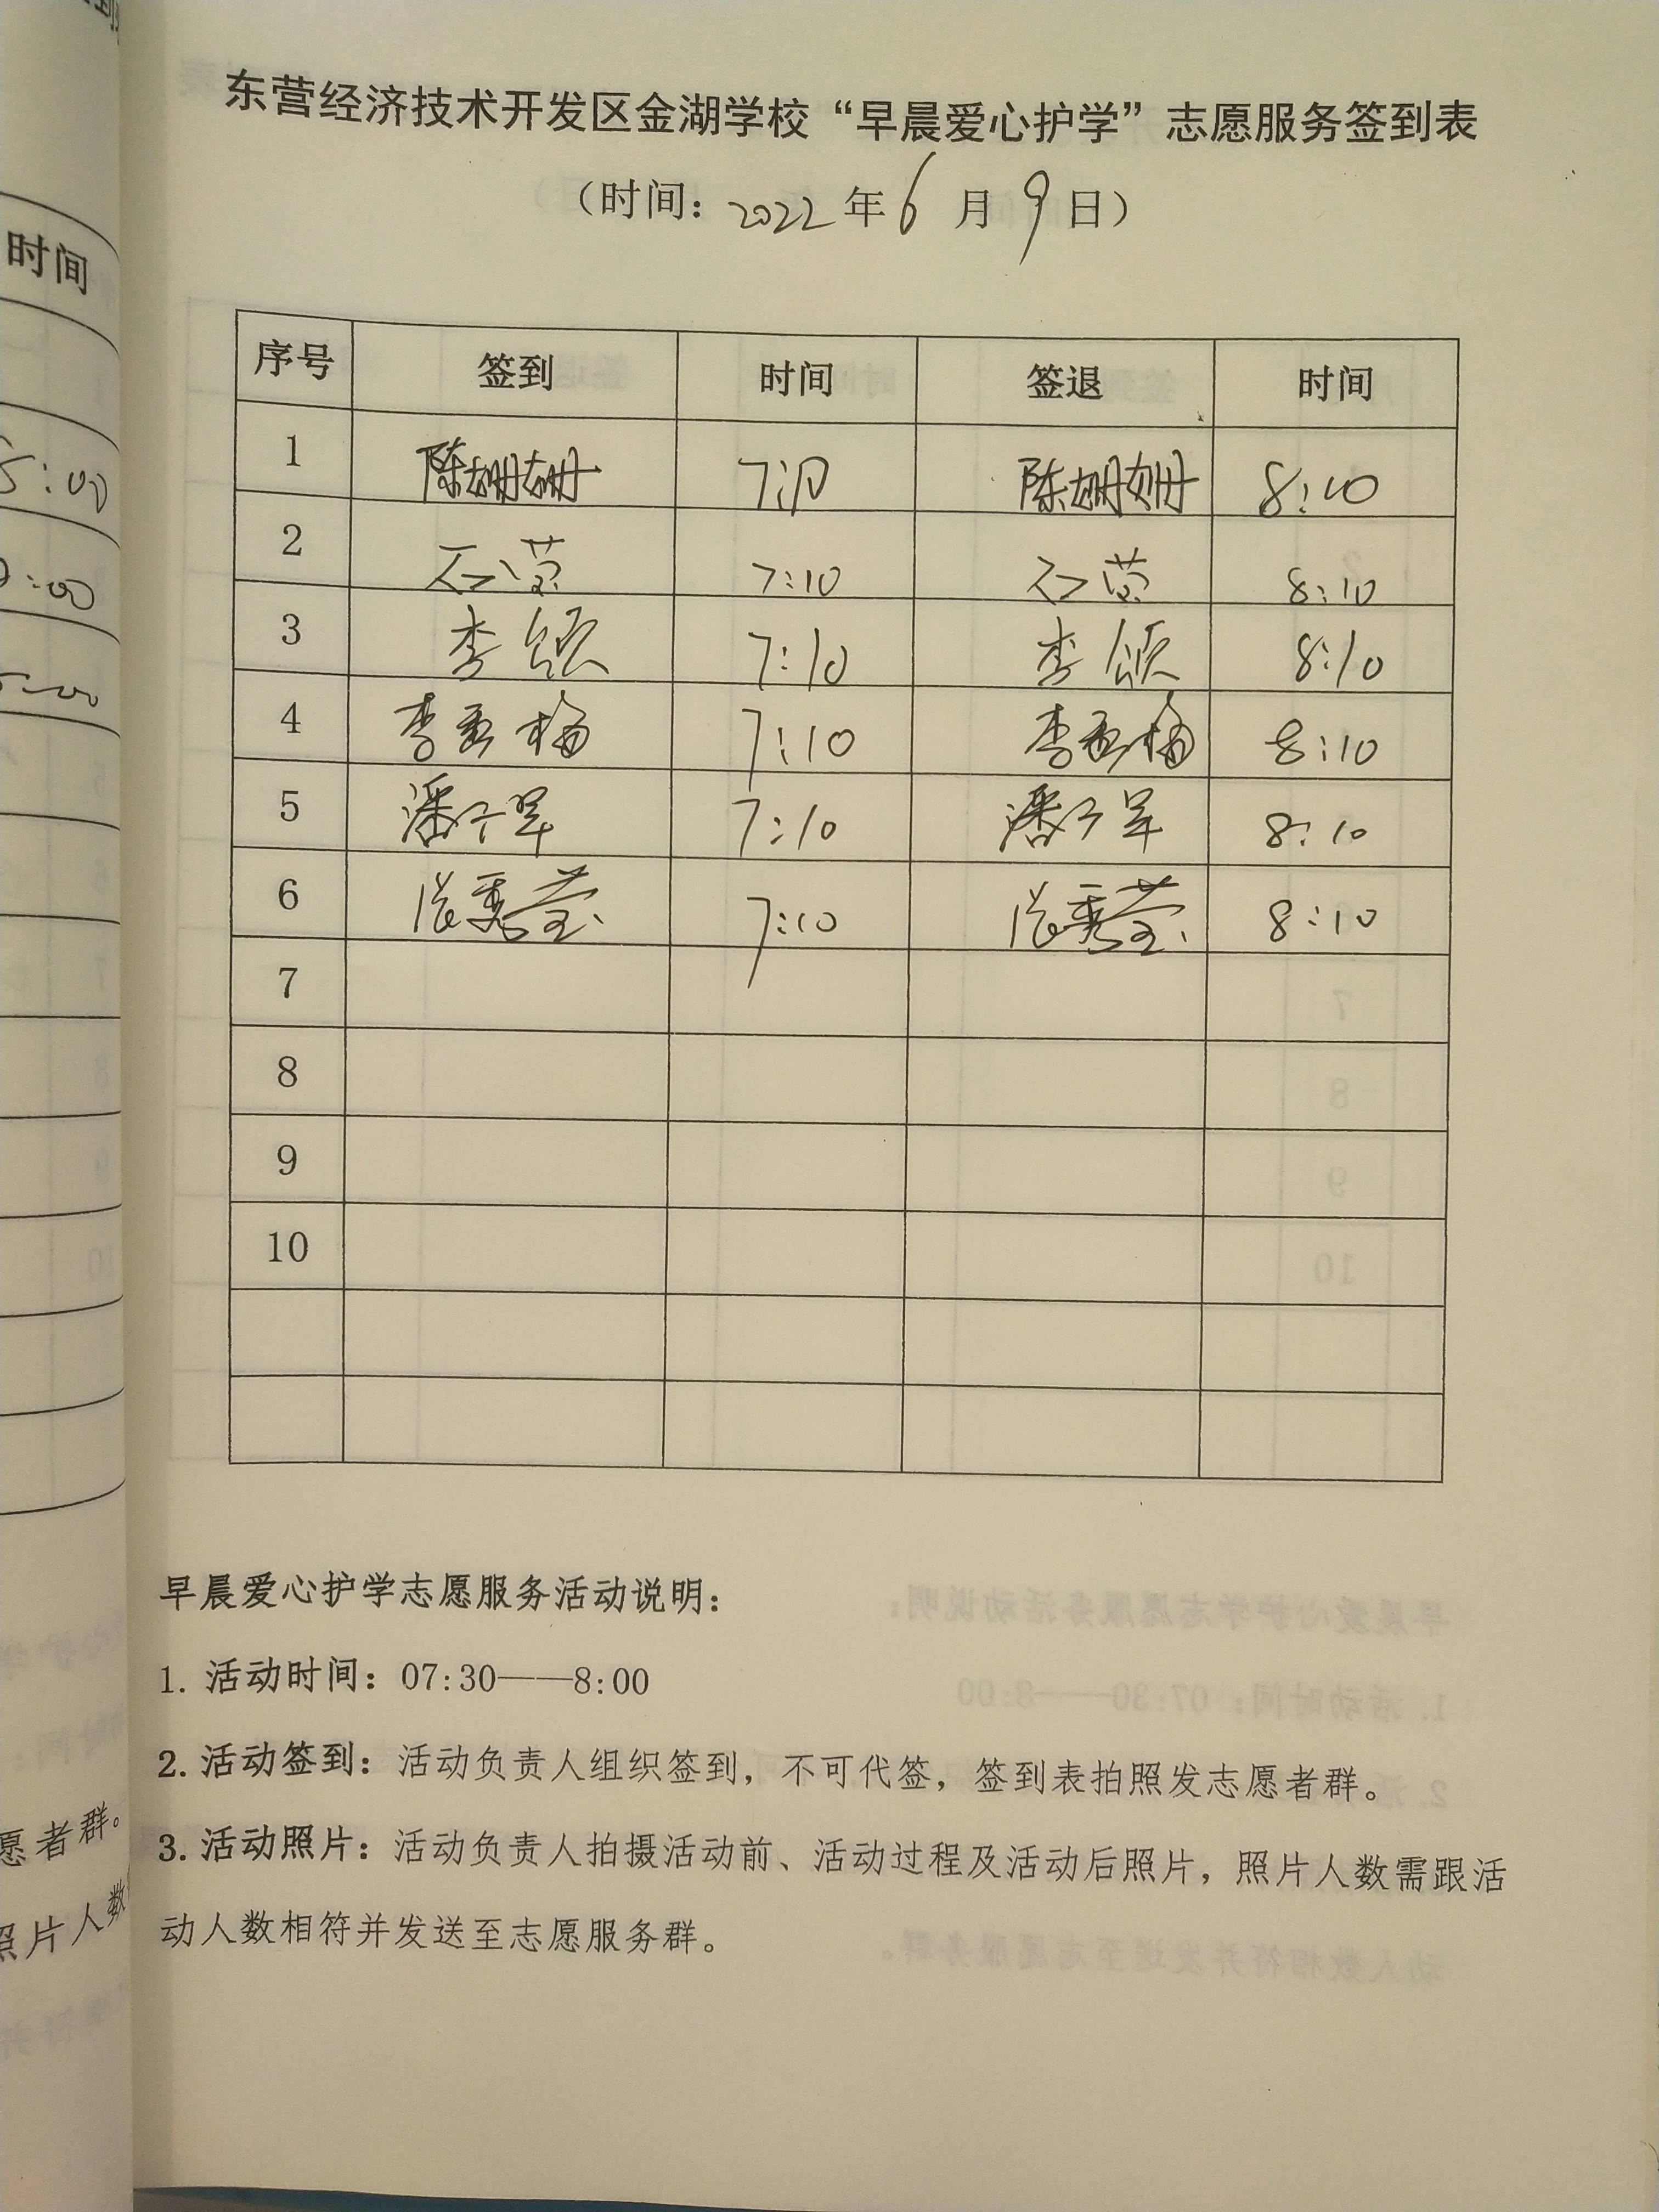 东营经济技术开发区金湖学校“早晨爱心护学”志愿服务签到表
（时间：2022年6月9日）
序号 签到 时间 签退 时间
1 陈姗姗 7:10 陈姗姗 8:10
2 7:10 8:10
3 李颂 7:10 李颂 8:10
4 李秀梅 7:10 李秀梅 8:10
5 潘子军 7:10 潘子军 8:10
6 7:10 8:10
7
8
9
10
早晨爱心护学志愿服务活动说明：
1. 活动时间：07:30——8:00
2. 活动签到：活动负责人组织签到，不可代签，签到表拍照发志愿者群。
3. 活动照片：活动负责人拍摄活动前、活动过程及活动后照片，照片人数需跟活
动人数相符并发送至志愿服务群。
时间
5:00
:00
:00
愿者群。
照片人数